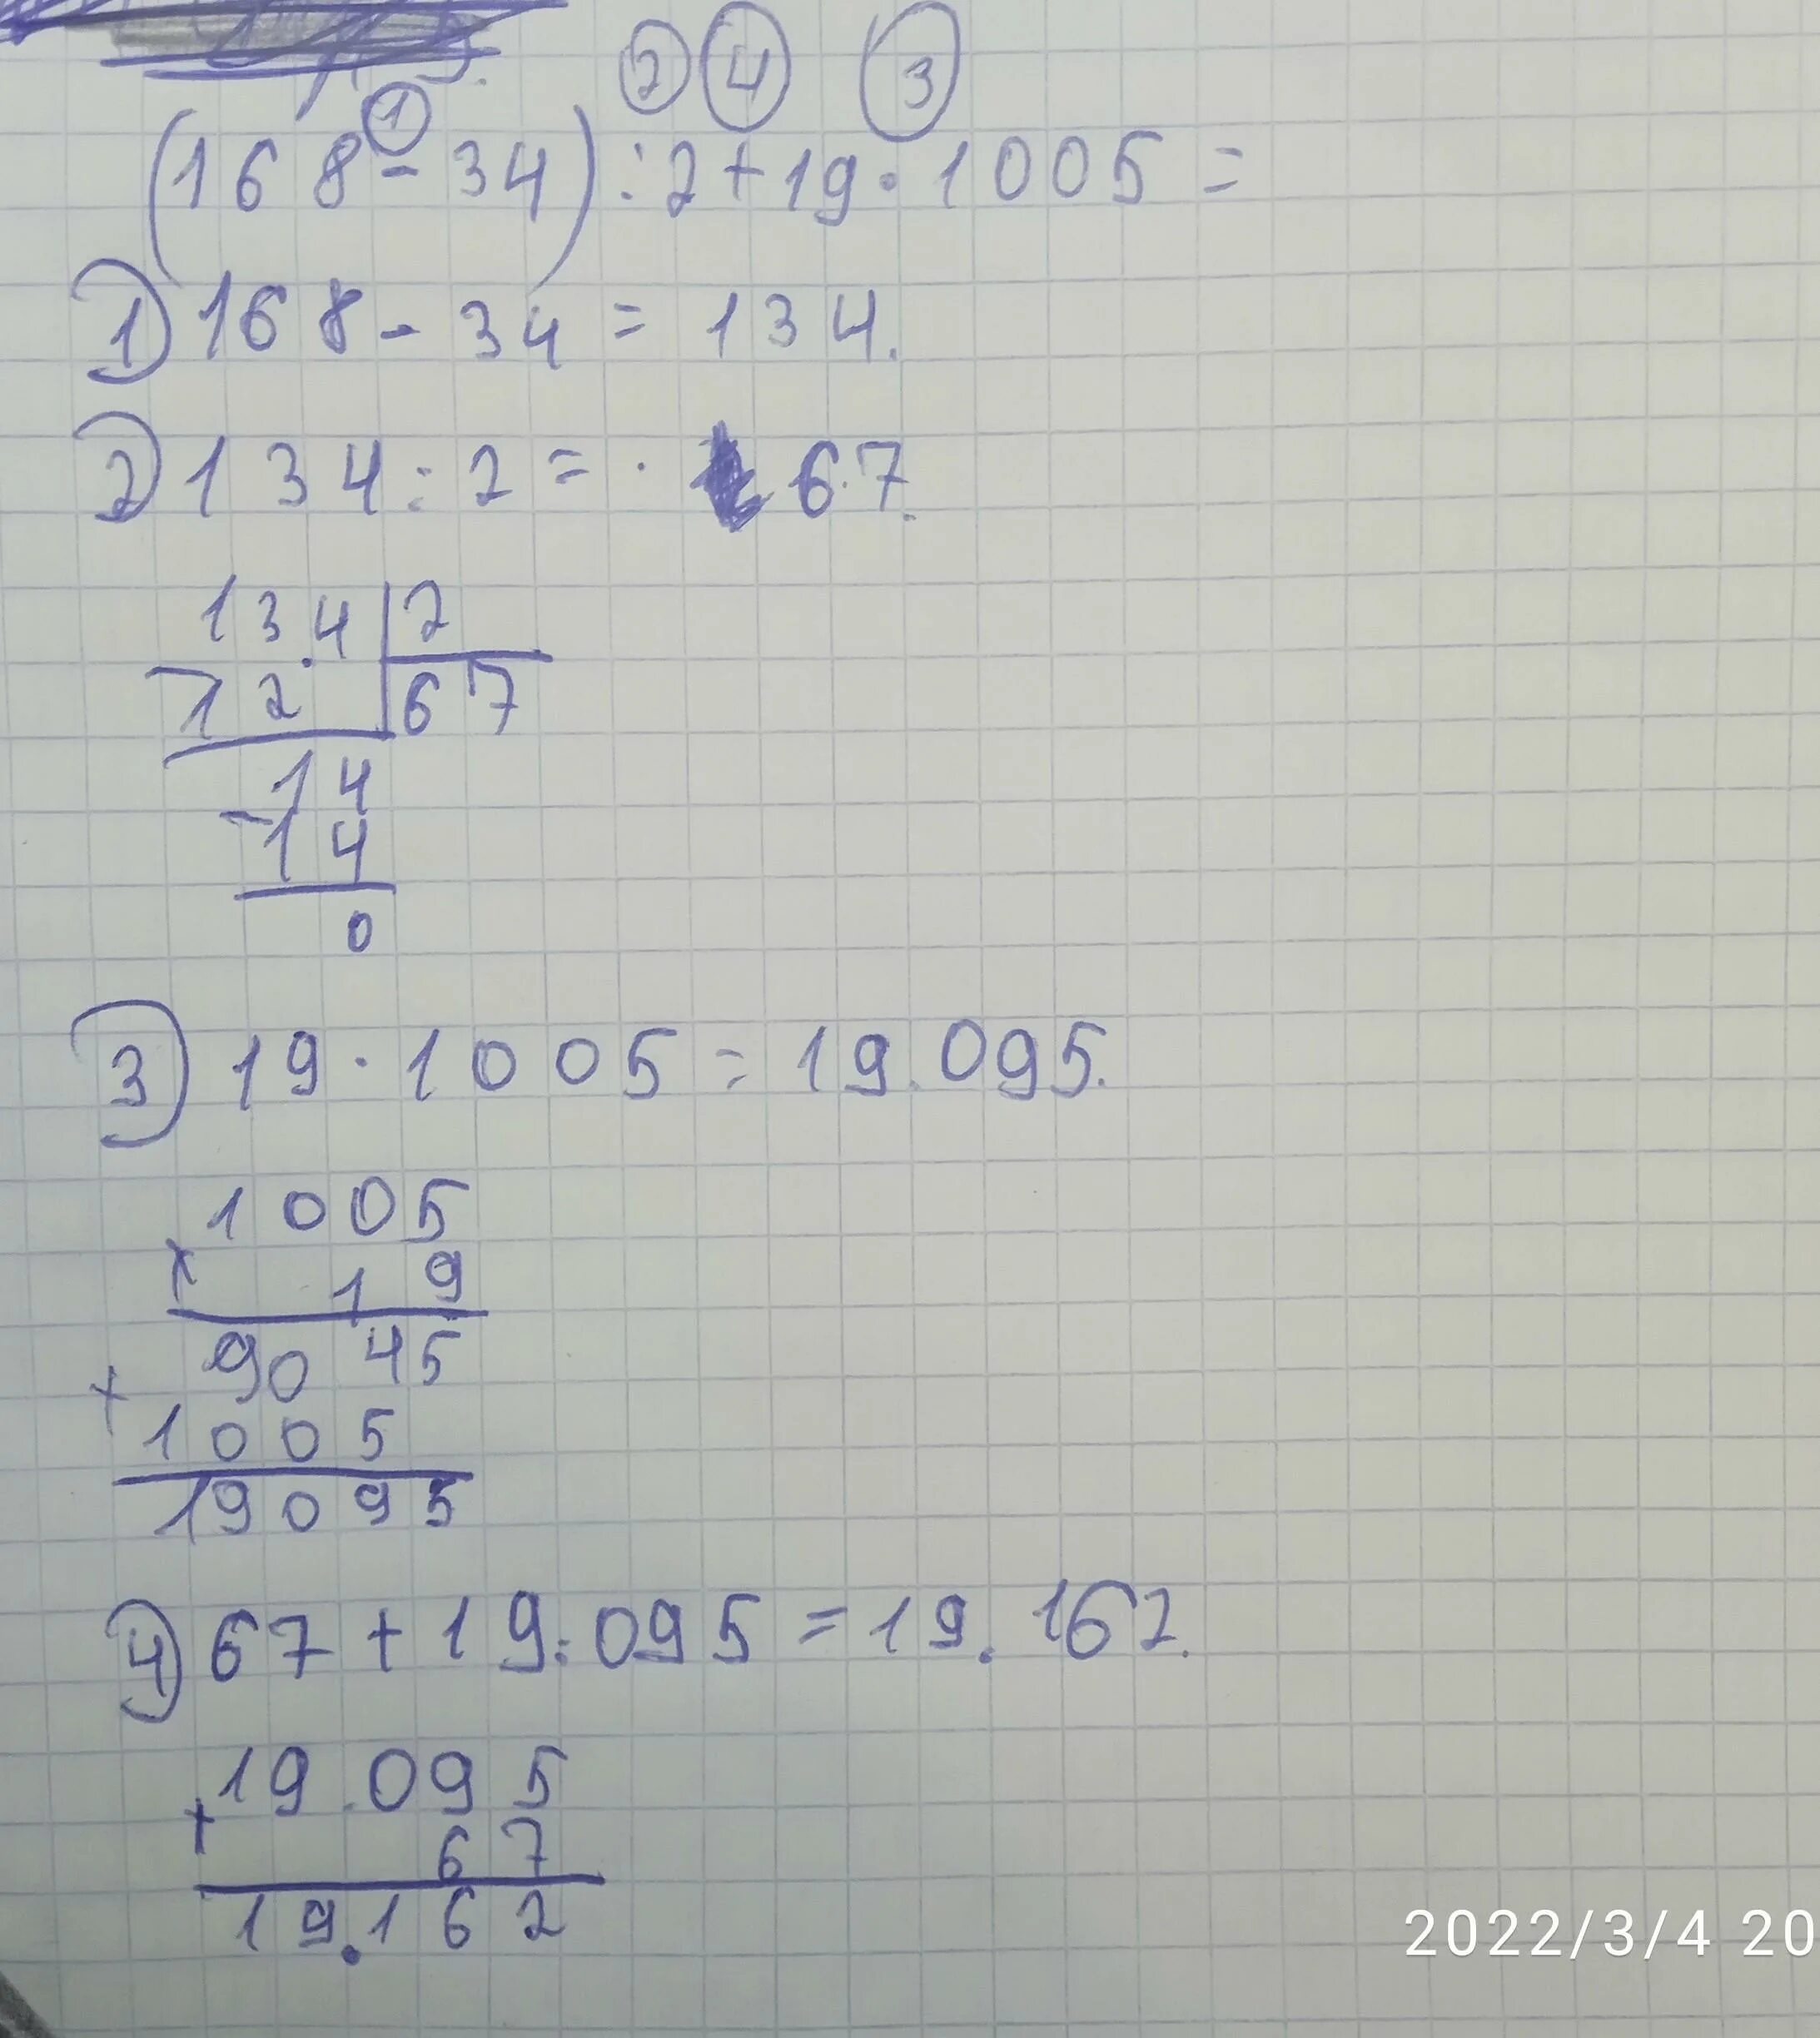 2 4 3
1
(168-34):2+19·1005=
1) 168-34=134.
2) 134:2=·67.
134 2
-12 67
14
-14
0
3) 19·1005=19.095.
1005
x 19
9045
+
1005
19095
4) 67+19.095=19.162.
19.095
+
67
19.162
2022/3/4 20